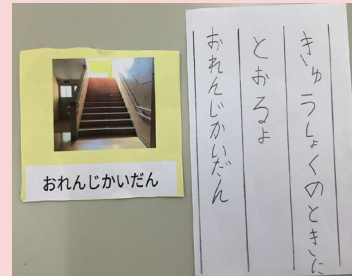 おれんじかいだん
きゅうしょくのときに
とおるよ
おれんじかいだん